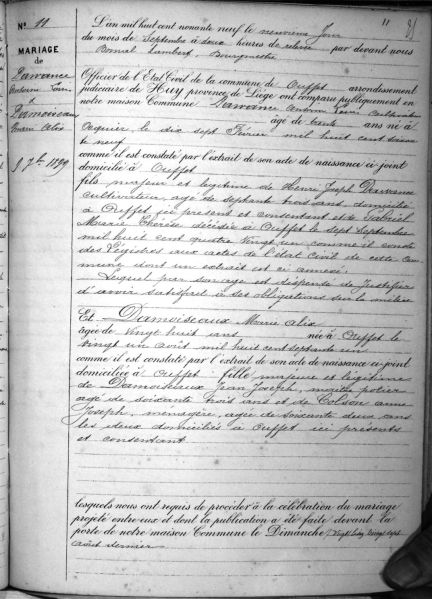 N° 11
MARIAGE
de
Damoiseaux
9 7bre 1899
11
L'an mil huit cent nonante neuf le neuvième jour
du mois de Septembre à deux heures de relevée par devant nous
Lambert, Bourgmestre
Officier de l'Etat Civil de la commune de Ouffet arrondissement
judiciaire de Huy province de Liège ont comparu publiquement en
notre maison Commune Louis Cultivateur
âgé de trente ans né à
le dix sept Février mil huit cent soixante
neuf
comme il est constaté par l'extrait de son acte de naissance ci-joint
domicilié à Ouffet
fils majeur et légitime de Henri Joseph
cultivateur, âgé de septante trois ans, domicilié
à Ouffet ici présent et consentant et de Gabriel
Marie Thérèse décédée à Ouffet le sept Septembre
mil huit cent quatre vingt un comme il conste
des registres aux actes de l'état civil de cette com
mune dont un extrait est ci annexé.
Lequel par son age est dispensé de justifier
d'avoir satisfait à ses obligations sur la milice
Et Damoiseaux Marie Alix
âgée de vingt huit ans née à Ouffet le
vingt un août mil huit cent septante un
comme il est constaté par l'extrait de son acte de naissance ci-joint
domiciliée à Ouffet fille majeure et légitime
de Damoiseaux Jean Joseph, maître potier
agé de soixante trois ans et de Colson Anne
Joseph, ménagère, agée de soixante deux ans
les deux domiciliés à Ouffet ici présents
et consentant
lesquels nous ont requis de procéder à la célébration du mariage
projeté entre eux et dont la publication a été faite devant la
porte de notre maison Commune le Dimanche vingt sept
août dernier